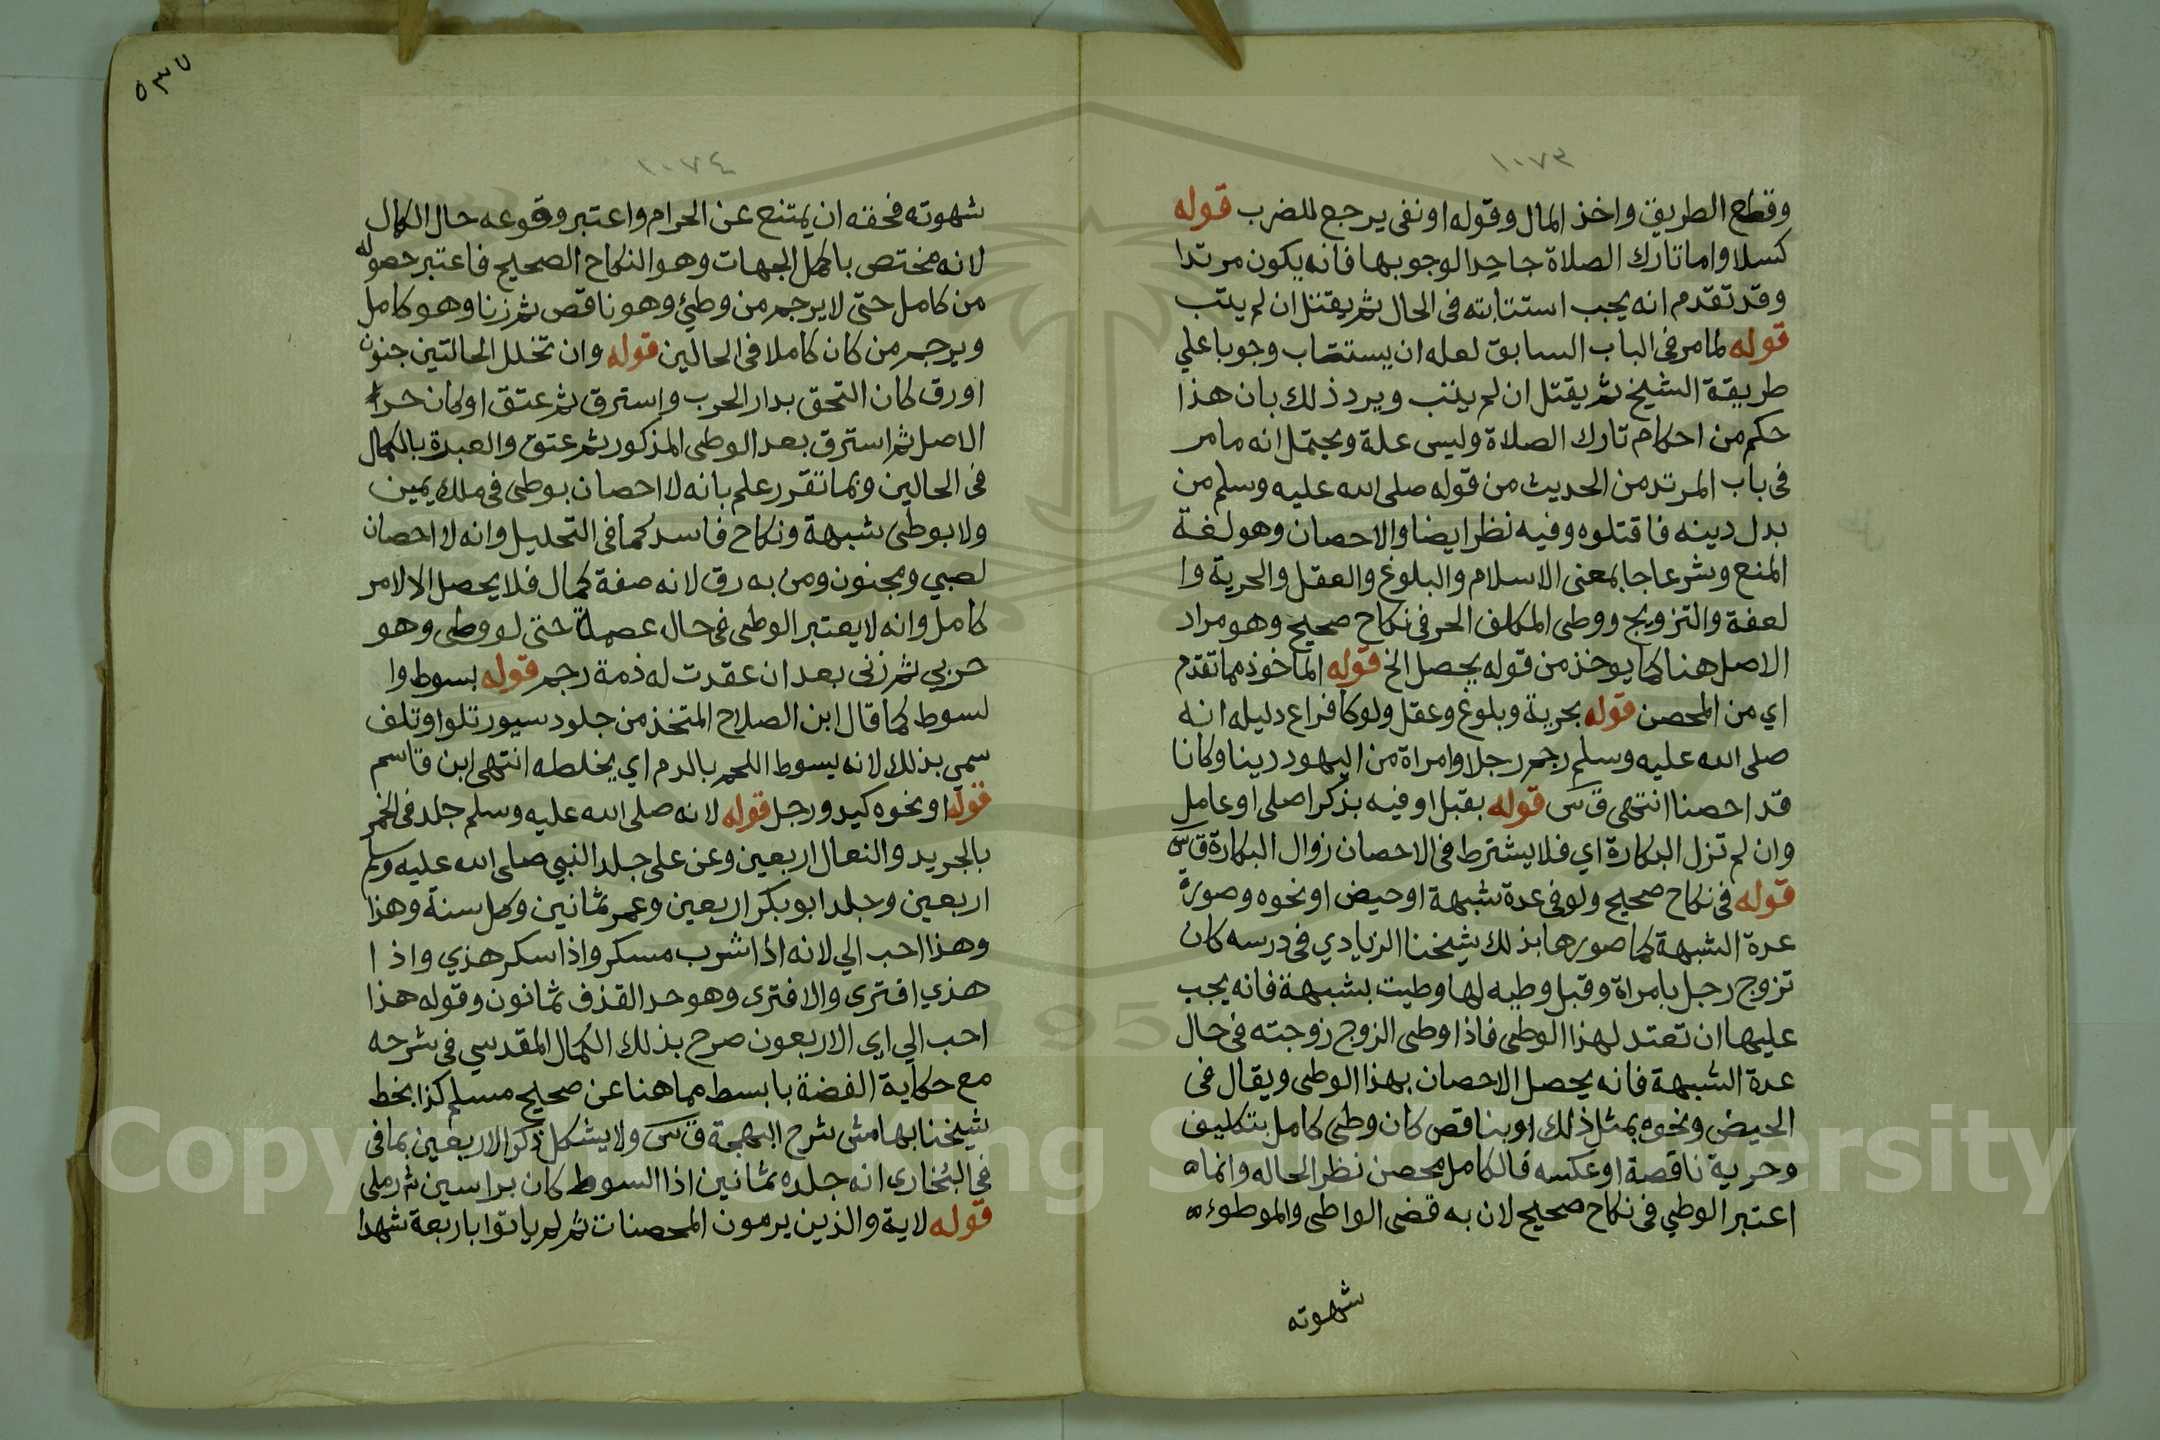 ١٠٧٣
وقطع الطريق واخذ المال وقوله او نفى يرجع للضرب قوله
كسلا واما تارك الصلاة جاحدا لوجوبها فانه يكون مرتدا
وقد تقدم انه يجب استتابته فى الحال ثم يقتل ان لم يتب
قوله لما مر فى الباب السابق لعله ان يستتاب وجوبا علي
طريقة الشيخ ثم يقتل ان لم يتب ويرد ذلك بان هذا
حكم من احكام تارك الصلاة وليس علة ويحتمل انه ما مر
فى باب المرتد من الحديث من قوله صلى الله عليه وسلم من
بدل دينه فاقتلوه وفيه نظر ايضا والاحصان وهو لغة
المنع وشرعا جا بمعنى الاسلام والبلوغ والعقل والحرية وا
لعفة والتزويج ووطى المكلف الحر فى نكاح صحيح وهو مراد
الاصل هنا كما يوخذ من قوله يحصل الخ قوله الماخوذ مما تقدم
اي من المحصن قوله بحرية وبلوغ وعقل ولو كافرا ع دليله انه
صلى الله عليه وسلم رجم رجلا وامراة من اليهود زنيا وكانا
قد احصنا انتهى ق س قوله بقبل او فيه بذكر اصلى او عامل
وان لم تزل البكارة اي فلا يشترط فى الاحصان زوال البكارة ق س
قوله فى نكاح صحيح ولو فى عدة شبهة او حيض او نحوه وصورة
عدة الشبهة كما صورها بذلك شيخنا الزيادي فى درسه كان
تزوج رجل بامراة وقبل وطيه لها وطيت بشبهة فانه يجب
عليها ان تعتد لهذا الوطى فاذا وطى الزوج زوجته فى حال
عدة الشبهة فانه يحصل الاحصان بهذا الوطى ويقال فى
الحيض ونحوه بمثل ذلك او بناقص كان وطى كامل بتكليف
وحرية ناقصة او عكسه فالكامل محصن نظرا لحاله وانما
اعتبر الوطي فى نكاح صحيح لان به قضى الواطى والموطوءة
شهوته
٥٣٧
١٠٧٤
شهوته فحقه ان يمتنع عن الحرام واعتبر وقوعه حال الكمال
لانه مختص باكمل الجهات وهو النكاح الصحيح فاعتبر حصوله
من كامل حتى لا يرجم من وطئ وهو ناقص ثم زنا وهو كامل
ويرجم من كان كاملا فى الحالين قوله وان تخلل الحالتين جنون
او رق كان التحق بدار الحرب واسترق ثم عتق او كان حرا
الاصل ثم استرق بعد الوطى المذكور ثم عتق والعبرة بالكمال
فى الحالين وبما تقرر علم بانه لا احصان بوطى فى ملك يمين
ولا بوطى شبهة ونكاح فاسد كما فى التحليل وانه لا احصان
لصبي ومجنون ومن به رق لانه صفة كمال فلا يحصل الا لامر
كامل وانه لا يعتبر الوطى فى حال عصمة حتى لو وطى وهو
حربي ثم زنى بعد ان عقدت له ذمة رجم قوله بسوط وا
لسوط كما قال ابن الصلاح المتخذ من جلود سيور تلوا وتلف
سمي بذلك لانه يسوط اللحم بالدم اي يخلطه انتهى ابن قاسم
قوله او نحوه كيد ورجل قوله لانه صلى الله عليه وسلم جلد فى الخمر
بالجريد والنعال اربعين وعن على جلد النبي صلى الله عليه وسلم
اربعين وجلد ابو بكر اربعين وعمر ثمانين وكل سنة وهذا
وهذا احب الي لانه اذا شرب مسكر واذا سكر هذي واذا
هذي افترى والافترى وهو حد القذف ثمانون وقوله هذا
احب الي اى الاربعون صرح بذلك الكمال المقدسي فى شرحه
مع حكاية الفضة بابسط مما هنا عن صحيح مسلم كذا بخط
شيخنا بهامش شرح البهجة ق س ولا يشكل ذكر الاربعين بما فى
فى البخاري انه جلده ثمانين اذا السوط كان براسين ثم رملى
قوله لاية والذين يرمون المحصنات ثم لم ياتوا باربعة شهدا
1957
Copyright © King Saud University